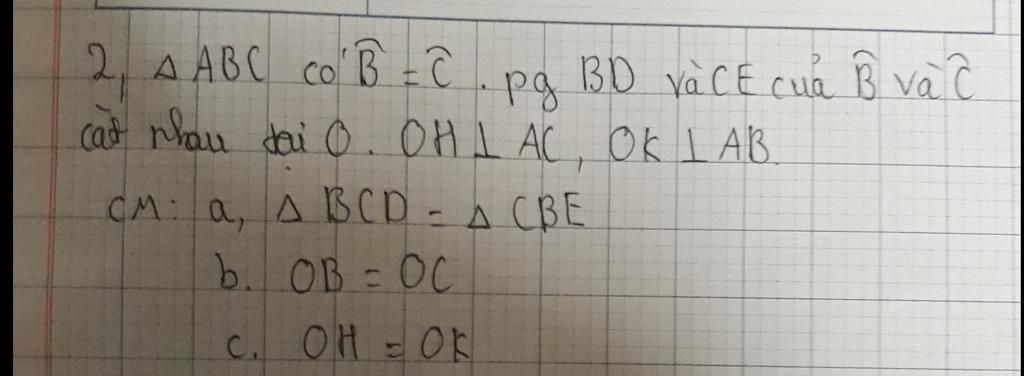 2, Δ ABC có B̂ = Ĉ . pg BD và CE của B̂ và Ĉ
cắt nhau tại O. OH ⊥ AC, OK ⊥ AB.
CM: a, Δ BCD = Δ CBE
b. OB = OC
c. OH = OK